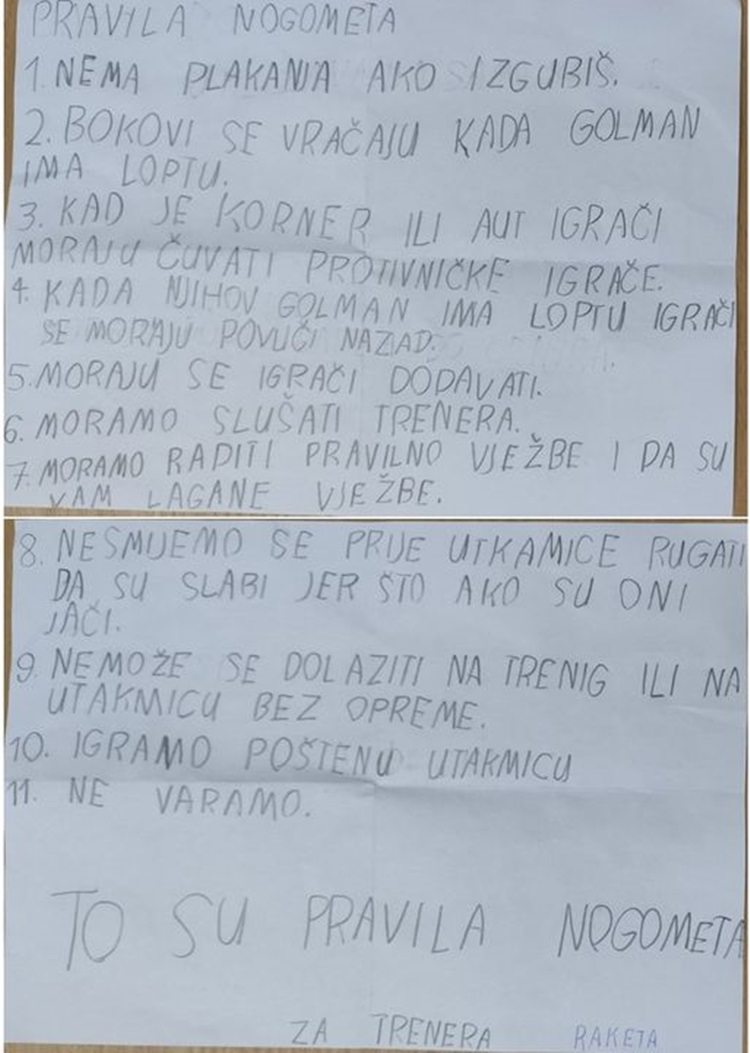 PRAVILA NOGOMETA
1. NEMA PLAKANJA AKO IZGUBIŠ.
2. BOKOVI SE VRAČAJU KADA GOLMAN
IMA LOPTU.
3. KAD JE KORNER ILI AUT IGRAČI
MORAJU ČUVATI PROTIVNIČKE IGRAČE.
4. KADA NJIHOV GOLMAN IMA LOPTU IGRAČI
SE MORAJU POVUČI NAZAD.
5. MORAJU SE IGRAČI DODAVATI.
6. MORAMO SLUŠATI TRENERA.
7. MORAMO RADITI PRAVILNO VJEŽBE I DA SU
VAM LAGANE VJEŽBE.
8. NESMIJEMO SE PRIJE UTKAMICE RUGATI
DA SU SLABI JER ŠTO AKO SU ONI
JAČI.
9. NEMOŽE SE DOLAZITI NA TRENIG ILI NA
UTAKMICU BEZ OPREME.
10. IGRAMO POŠTENU UTAKMICU
11. NE VARAMO.
TO SU PRAVILA NOGOMETA
ZA TRENERA RAKETA